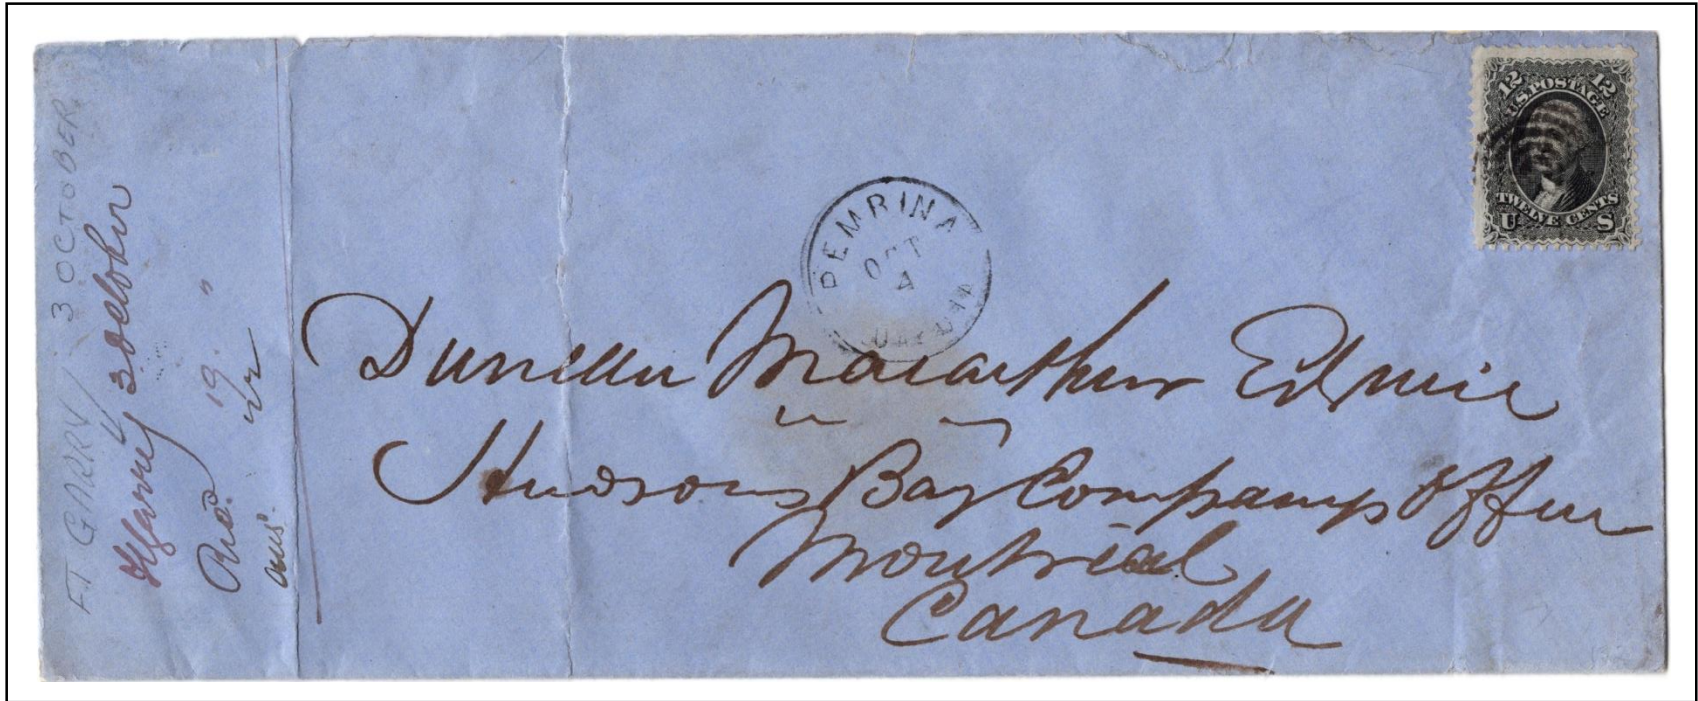 FT GARRY / 3 OCTOBER
Ft Garry 3 October
Rec. 19 "
ans.
PEMBINA
OCT
4
DAKOTA
12 12
U.S. POSTAGE
TWELVE CENTS
U S
Duncan Macarthur Esquire
Hudsons Bay Companys Office
Montreal
Canada